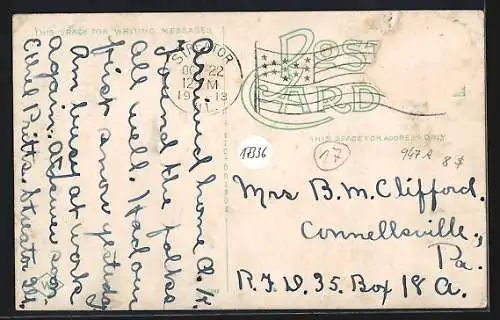 THIS SPACE FOR WRITING MESSAGES
Arrived home O.K.
Found the folks
all well. Had our
first snow yesterday
Am busy at work
again. Answer soon.
Carl Pritts, Streator Ill.
STREATOR
OCT 22
12 M
1913
ILL.
POST CARD
THIS SPACE FOR ADDRESS ONLY
17336
17
947A 8$
Mrs B.M. Clifford.
Connellsville,
Pa.
R.F.D. 35. Box 18 A.